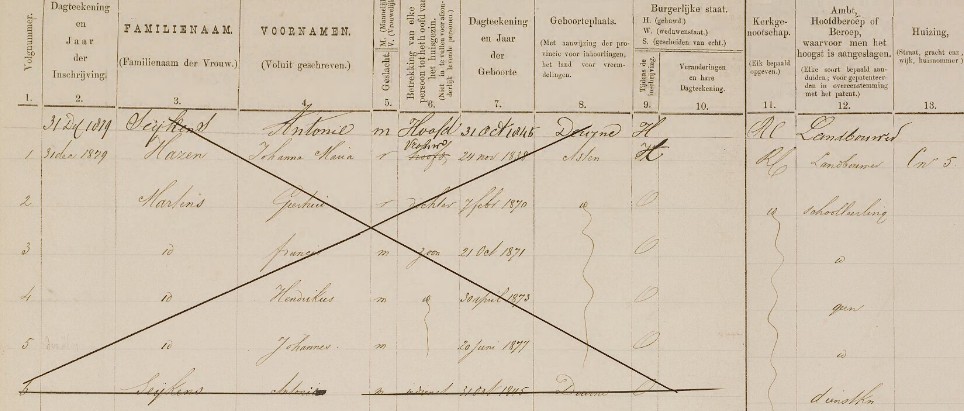 Volgnummer.
Dagteekening en Jaar der Inschrijving.
FAMILIENAAM.
(Familienaam der Vrouw.)
VOORNAMEN.
(Voluit geschreven.)
Geslacht. M. (Mannelijk) V. (Vrouwelijk)
Betrekking van elke persoon tot het hoofd van het huisgezin.
Dagteekening en Jaar der Geboorte
Geboorteplaats.
(Met aanwijzing der provincie voor inboorlingen, het land voor vreemdelingen.
Burgerlijke staat.
H. (gehuwd.)
W. (weduwestaat.)
S. (gescheiden van echt.)
Tijdens de inschrijving.
Veranderingen en hare Dagteekening.
Kerkgenootschap.
(Elk bepaald opgeven.)
Ambt, Hoofdberoep of Beroep, waarvoor men het hoogst is aangeslagen.
(Elke soort bepaald aanduiden; voor gepatenteerden in overeenstemming met het patent.)
Huizing,
(Straat, gracht enz., wijk, huisnummer)
1. 2. 3. 4. 5. 6. 7. 8. 9. 10. 11. 12. 13.
31 Dec 1879 Seijkens Antonie m Hoofd 31 Oct 1845 Deurne H RC Landbouwer
1 31 dec 1879 Hazen Johanna Maria v 24 nov Asten H RC Landbouwer 5
2 Martens v dochter 7 febr 1870 schoolleerling
3 id m zoon 21 Oct 1871
4 id Hendrikus m 30 april 1873 geen
5 id Johannes m 20 Juni 1877
Seijkens m 31 Oct 1845 Deurne